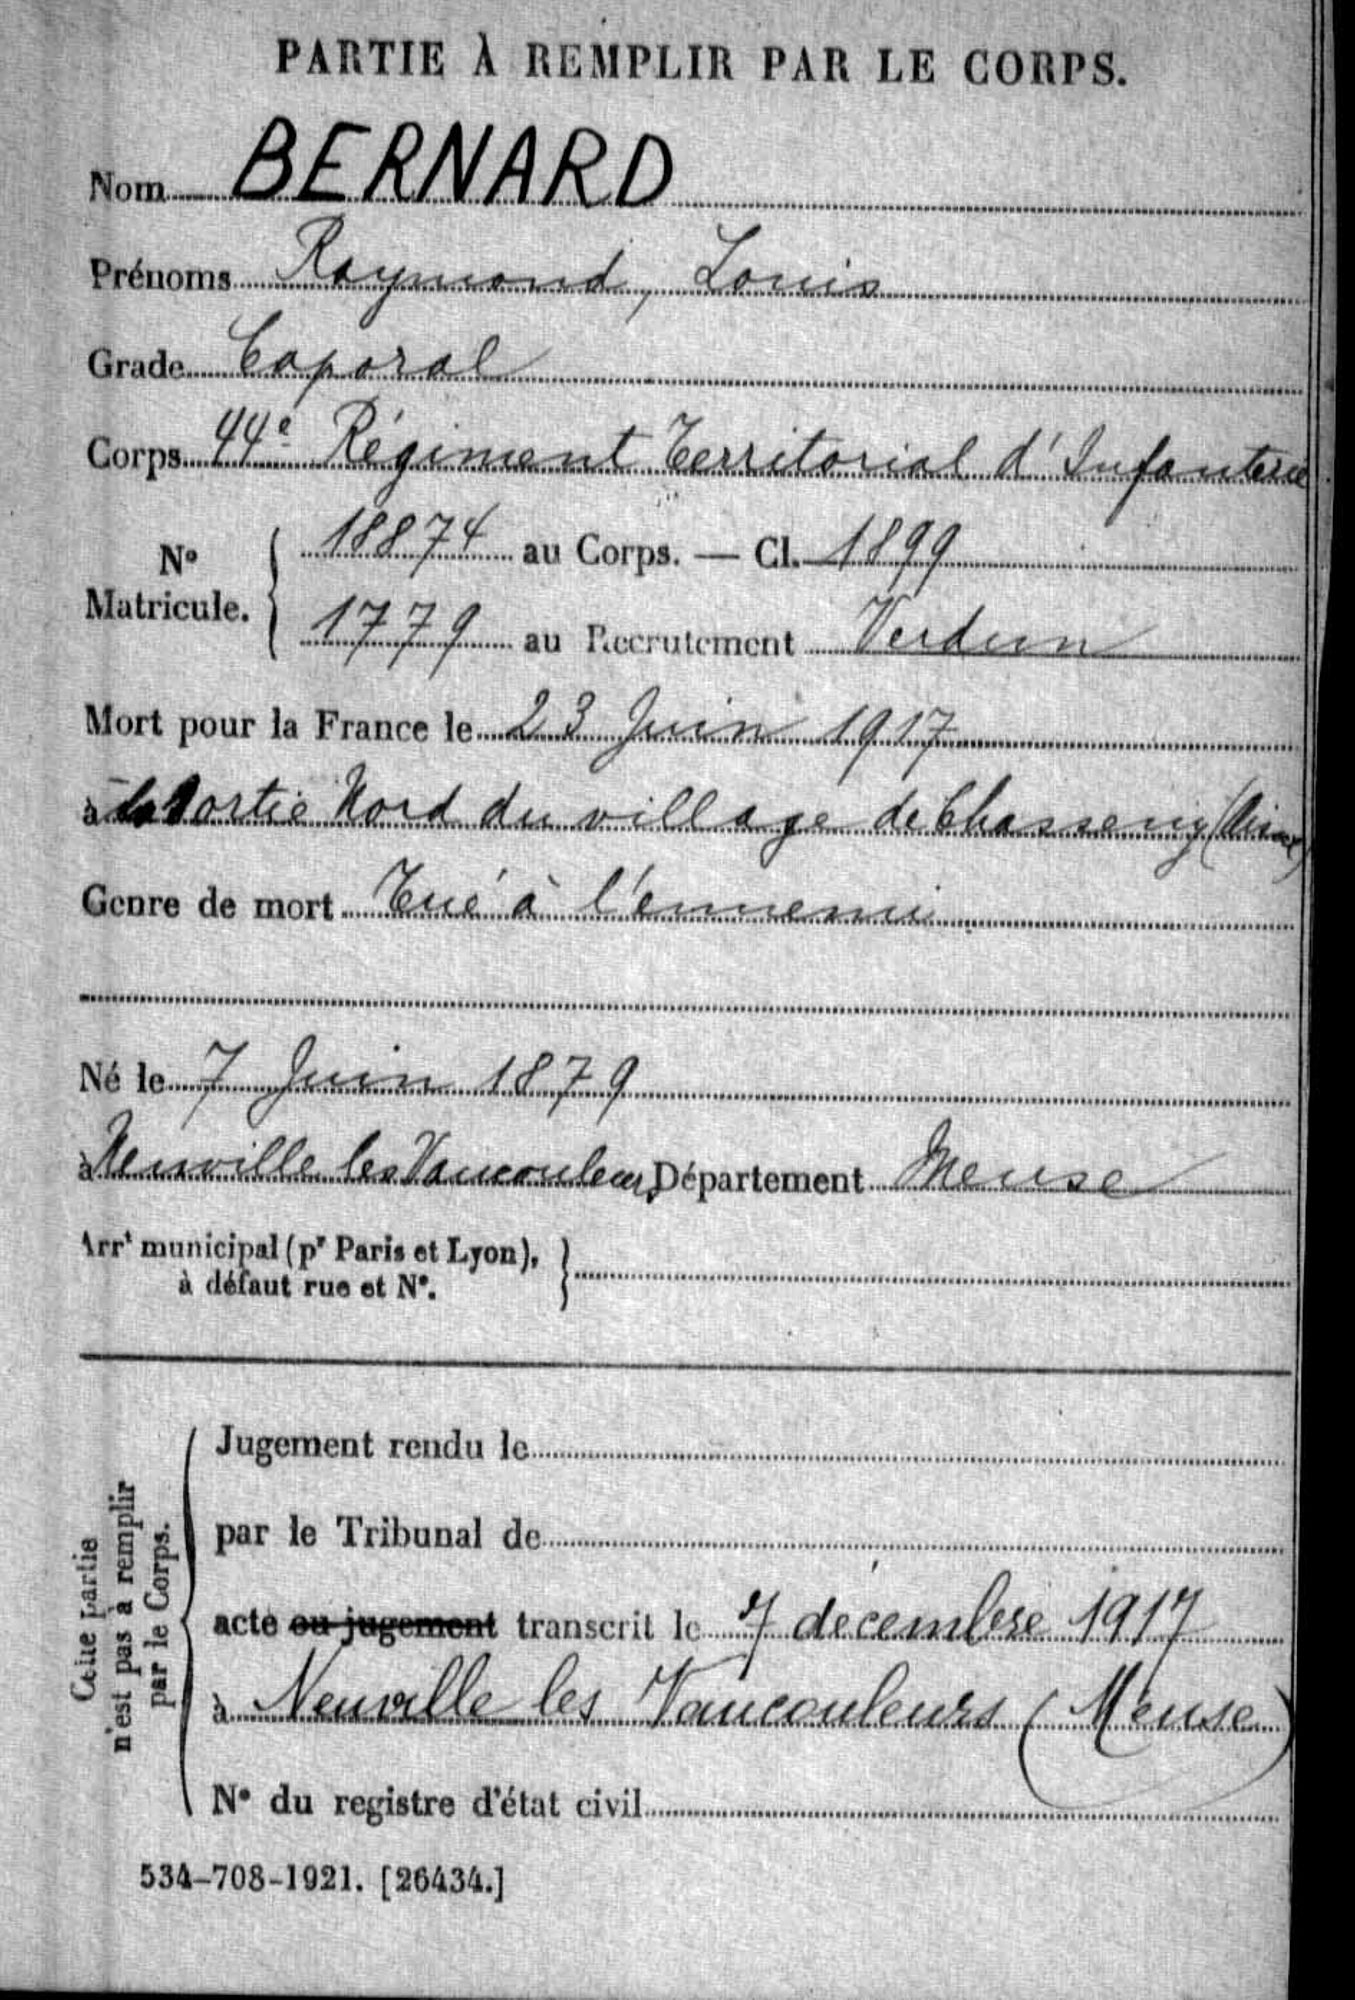 PARTIE À REMPLIR PAR LE CORPS.
Nom BERNARD
Prénoms Raymond, Louis
Grade Caporal
Corps 44e Régiment Territorial d'Infanterie
No Matricule. 18874 au Corps. — Cl. 1899
1779 au Recrutement Verdun
Mort pour la France le 23 Juin 1917
à la sortie Nord du village de Chassemy (Aisne)
Genre de mort Tué à l'ennemi
Né le 7 Juin 1879
à Neuville les Vaucouleurs Département Meuse
Arrt municipal (pr Paris et Lyon),
à défaut rue et No.
Cette partie
n'est pas à remplir
par le Corps.
Jugement rendu le
par le Tribunal de
acte ou jugement transcrit le 7 décembre 1917
à Neuville les Vaucouleurs (Meuse)
No du registre d'état civil
534-708-1921. [26434.]